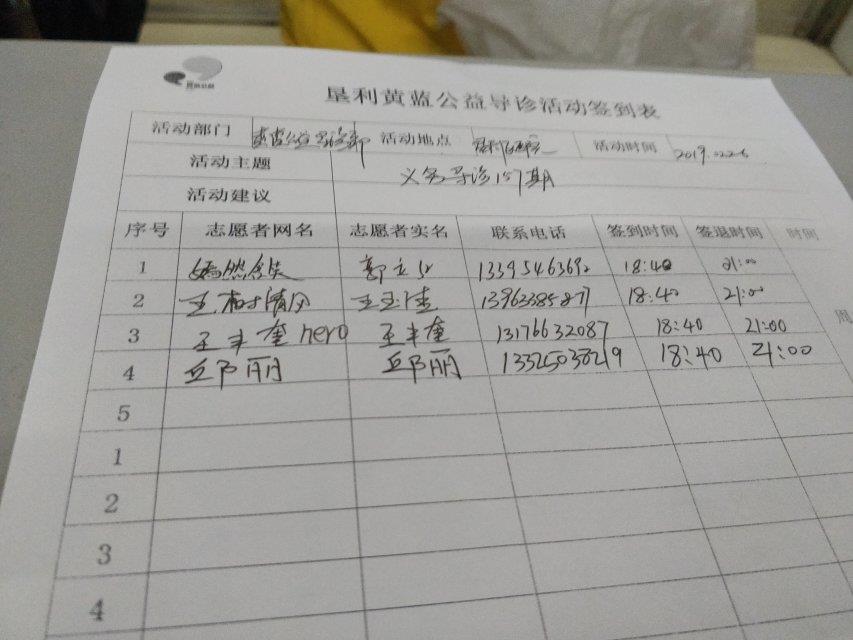 垦利黄蓝公益导诊活动签到表
活动部门 活动地点 活动时间 2019.02.26
活动主题 义务导诊157期
活动建议
序号 志愿者网名 志愿者实名 联系电话 签到时间 签退时间 时间
1 嫣然含笑 13395463692 18:40 21:00
2 13963385877 18:40 21:00
3 王丰奎hero 王丰奎 13176632087 18:40 21:00
4 丘邦丽 丘邦丽 13325038219 18:40 21:00
5
1
2
3
4